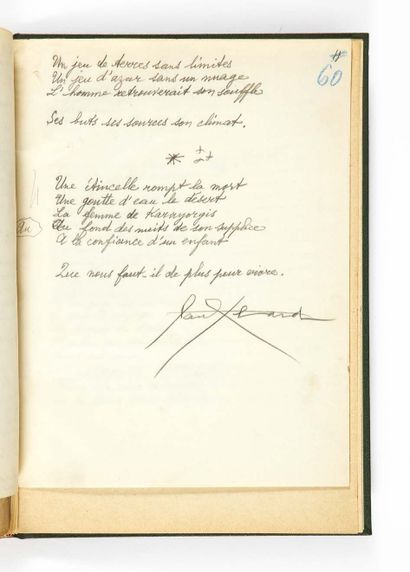 Un jeu de terres sans limites
Un jeu d'azur sans un nuage
L'homme retrouverait son souffle
Ses buts ses sources son climat.
60
Une étincelle rompt la mort
Une goutte d'eau le désert
La femme de Karayorgis
Au
Au fond des nuits de son supplice
A la confiance d'un enfant
Que nous faut-il de plus pour vivre.
Paul Eluard